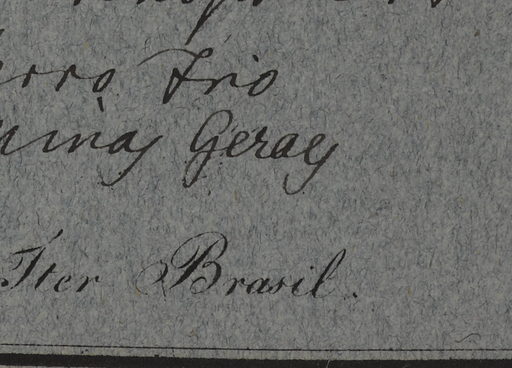 erro Frio
Minas Geraes
Iter Brasil.